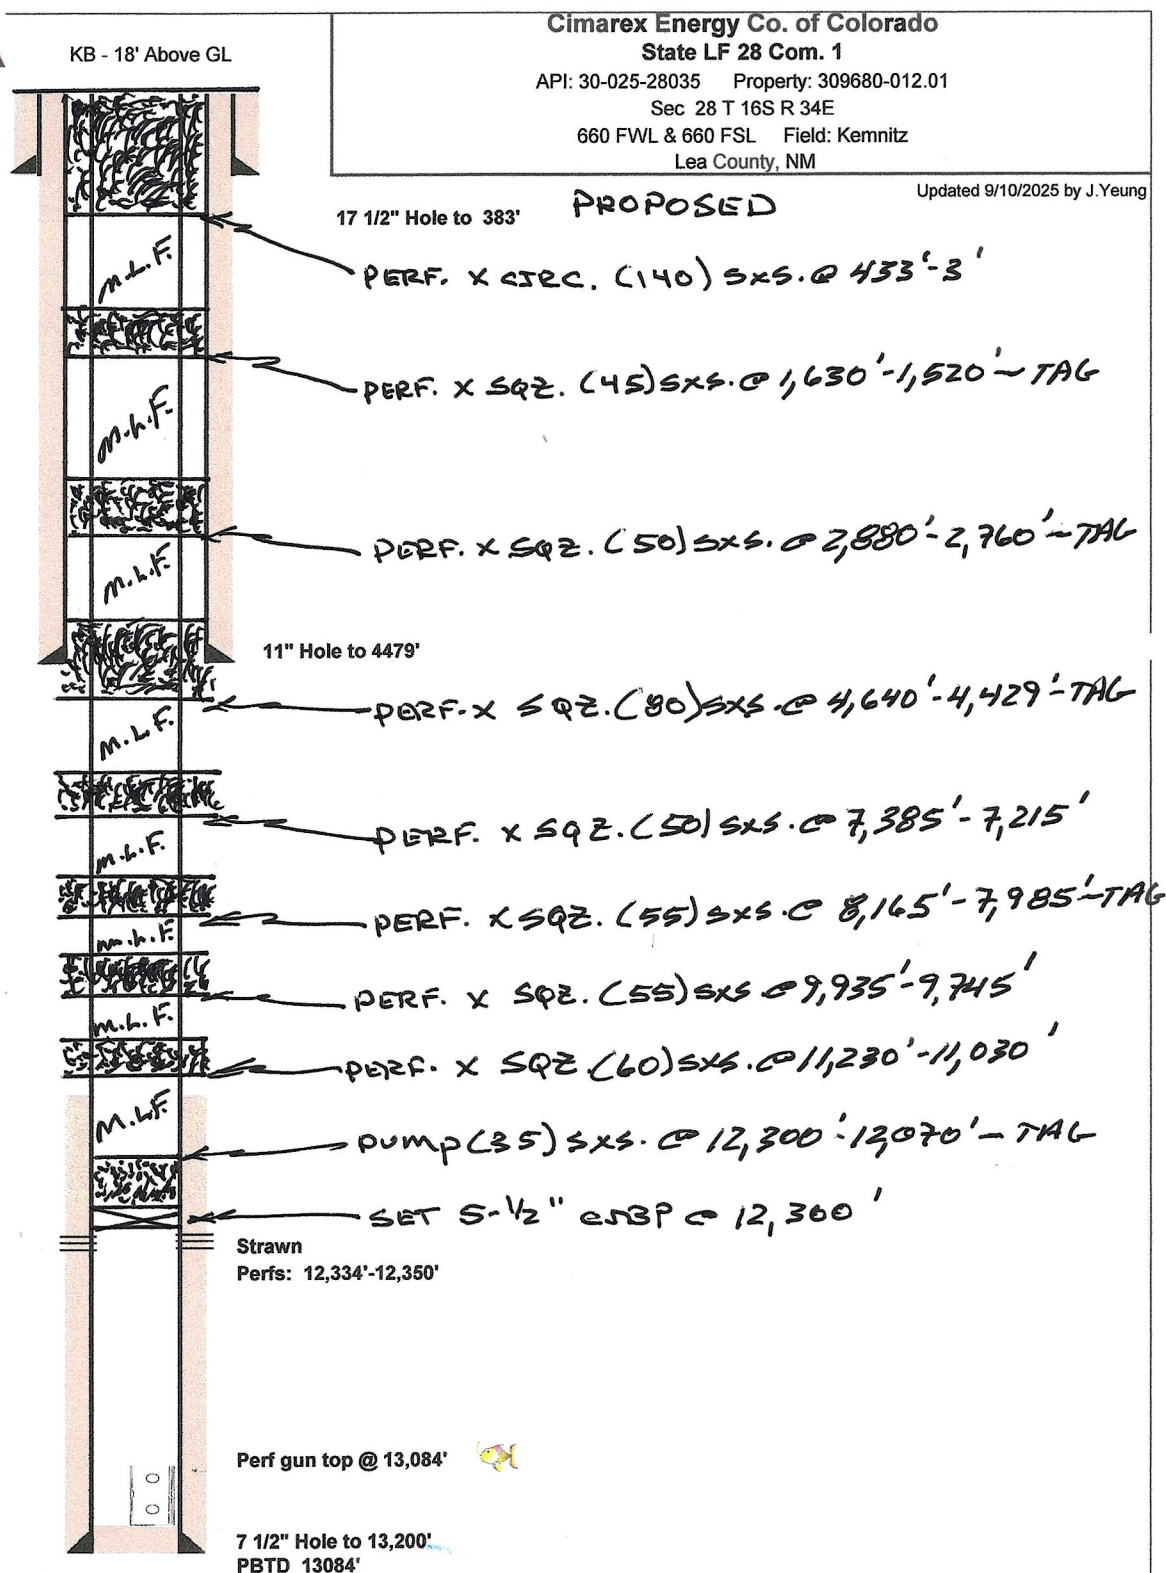 Cimarex Energy Co. of Colorado
KB - 18' Above GL
State LF 28 Com. 1
API: 30-025-28035 Property: 309680-012.01
Sec 28 T 16S R 34E
660 FWL & 660 FSL Field: Kemnitz
Lea County, NM
Updated 9/10/2025 by J.Yeung
PROPOSED
17 1/2" Hole to 383'
M.L.F.
PERF. X CIRC. (140) SXS. @ 433'-3'
PERF. X SQZ. (45) SXS. @ 1,630'-1,520'-TAG
M.L.F.
PERF. X SQZ. (50) SXS. @ 2,880'-2,760'-TAG
M.L.F.
11" Hole to 4479'
PERF. X SQZ. (80) SXS. @ 4,640'-4,429'-TAG
M.L.F.
PERF. X SQZ. (50) SXS. @ 7,385'-7,215'
M.L.F.
PERF. X SQZ. (55) SXS. @ 8,165'-7,985'-TAG
M.L.F.
PERF. X SQZ. (55) SXS @ 9,935'-9,745'
M.L.F.
PERF. X SQZ. (60) SXS. @ 11,230'-11,030'
M.L.F.
PUMP (35) SXS. @ 12,300'-12,070'-TAG
SET 5-1/2" CIBP @ 12,300'
Strawn
Perfs: 12,334'-12,350'
Perf gun top @ 13,084'
7 1/2" Hole to 13,200'
PBTD 13084'